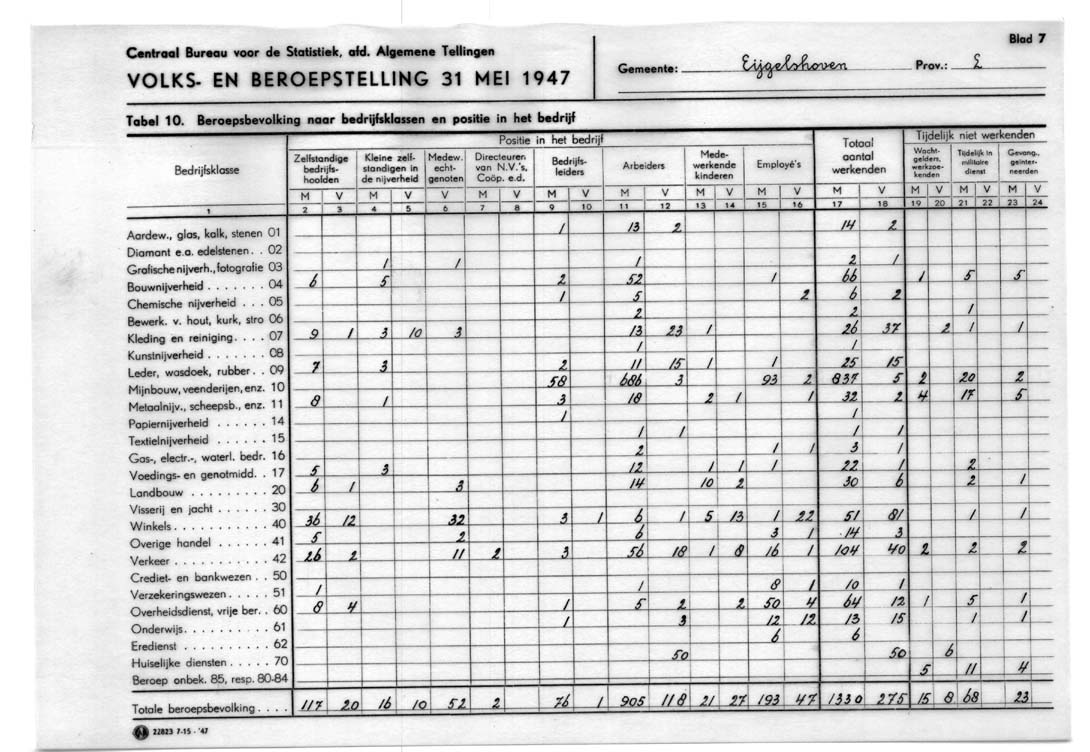 Centraal Bureau voor de Statistiek, afd. Algemene Tellingen
VOLKS- EN BEROEPSTELLING 31 MEI 1947
Blad 7
Gemeente: Eijgelshoven Prov.: L
Tabel 10. Beroepsbevolking naar bedrijfsklassen en positie in het bedrijf
Bedrijfsklasse
Positie in het bedrijf
Zelfstandige bedrijfs-hoofden
Kleine zelf-standigen in de nijverheid
Medew. echt-genoten
Directeuren van N.V.'s, Coöp. e.d.
Bedrijfs-leiders
Arbeiders
Mede-werkende kinderen
Employé's
Totaal aantal werkenden
Tijdelijk niet werkenden
Wacht-gelders, werkzoe-kenden
Tijdelijk in militaire dienst
Gevang., geïnter-neerden
M V M V V M V M V M V M V M V M V M V M V M V
1 2 3 4 5 6 7 8 9 10 11 12 13 14 15 16 17 18 19 20 21 22 23 24
Aardew., glas, kalk, stenen 01 1 13 2 14 2
Diamant e.a. edelstenen . . 02
Grafische nijverh., fotografie 03 1 1 1 2 1
Bouwnijverheid . . . . . . . 04 6 5 2 52 1 66 1 5 5
Chemische nijverheid . . . 05 1 5 2 6 2
Bewerk. v. hout, kurk, stro 06 2 2 1
Kleding en reiniging. . . . 07 9 1 3 10 3 13 23 1 26 37 2 1 1
Kunstnijverheid . . . . . . . 08 1 1
Leder, wasdoek, rubber. . 09 7 3 2 11 15 1 1 25 15
Mijnbouw, veenderijen, enz. 10 58 686 3 93 2 837 5 2 20 2
Metaalnijv., scheepsb., enz. 11 8 1 3 18 2 1 1 32 2 4 17 5
Papiernijverheid . . . . . . 14 1 1
Textielnijverheid . . . . . . 15 1 1 1 1
Gas-, electr.-, waterl. bedr. 16 2 1 1 3 1
Voedings- en genotmidd. . 17 5 3 12 1 1 1 22 1 2
Landbouw . . . . . . . . . 20 6 1 3 14 10 2 30 6 2 1
Visserij en jacht . . . . . . 30
Winkels . . . . . . . . . . . 40 36 12 32 3 1 6 1 5 13 1 22 51 81 1 1
Overige handel . . . . . . 41 5 2 6 3 1 14 3
Verkeer . . . . . . . . . . . 42 26 2 11 2 3 56 18 1 8 16 1 104 40 2 2 2
Crediet- en bankwezen . . 50
Verzekeringswezen. . . . . 51 1 1 8 1 10 1
Overheidsdienst, vrije ber. . 60 8 4 1 5 2 2 50 4 64 12 1 5 1
Onderwijs. . . . . . . . . . 61 1 3 12 12 13 15 1 1
Eredienst . . . . . . . . . . 62 6 6
Huiselijke diensten . . . . . 70 50 50 6
Beroep onbek. 85, resp. 80-84 5 11 4
Totale beroepsbevolking . . . . 117 20 16 10 52 2 76 1 905 118 21 27 193 47 1330 275 15 8 68 23
22823 7-15 - '47